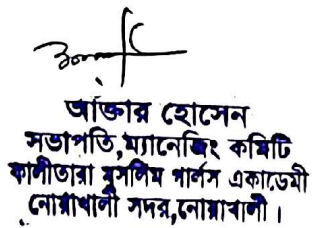 আক্তার হোসেন
সভাপতি,ম্যানেজিং কমিটি
কালীতারা মুসলিম গার্লস একাডেমী
নোয়াখালী সদর,নোয়াখালী।